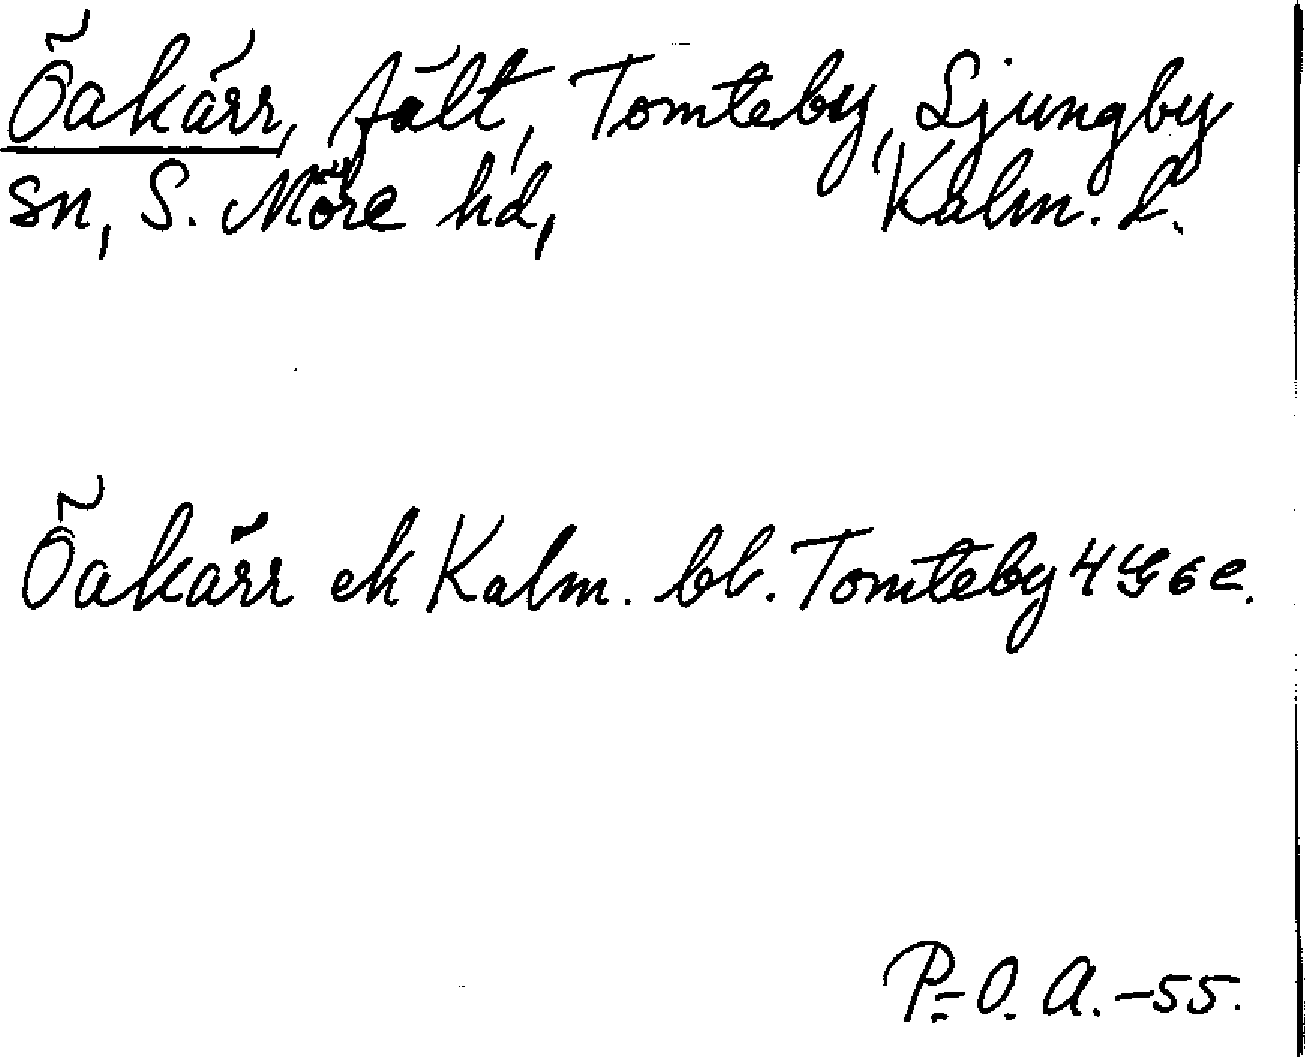 Öakärr, fält, Tomteby, Ljungby
sn, S. Möre hd, Kalm. l.
Öakärr ek Kalm. bl. Tomteby 4 G 6 e.
P.-O. A. -55.